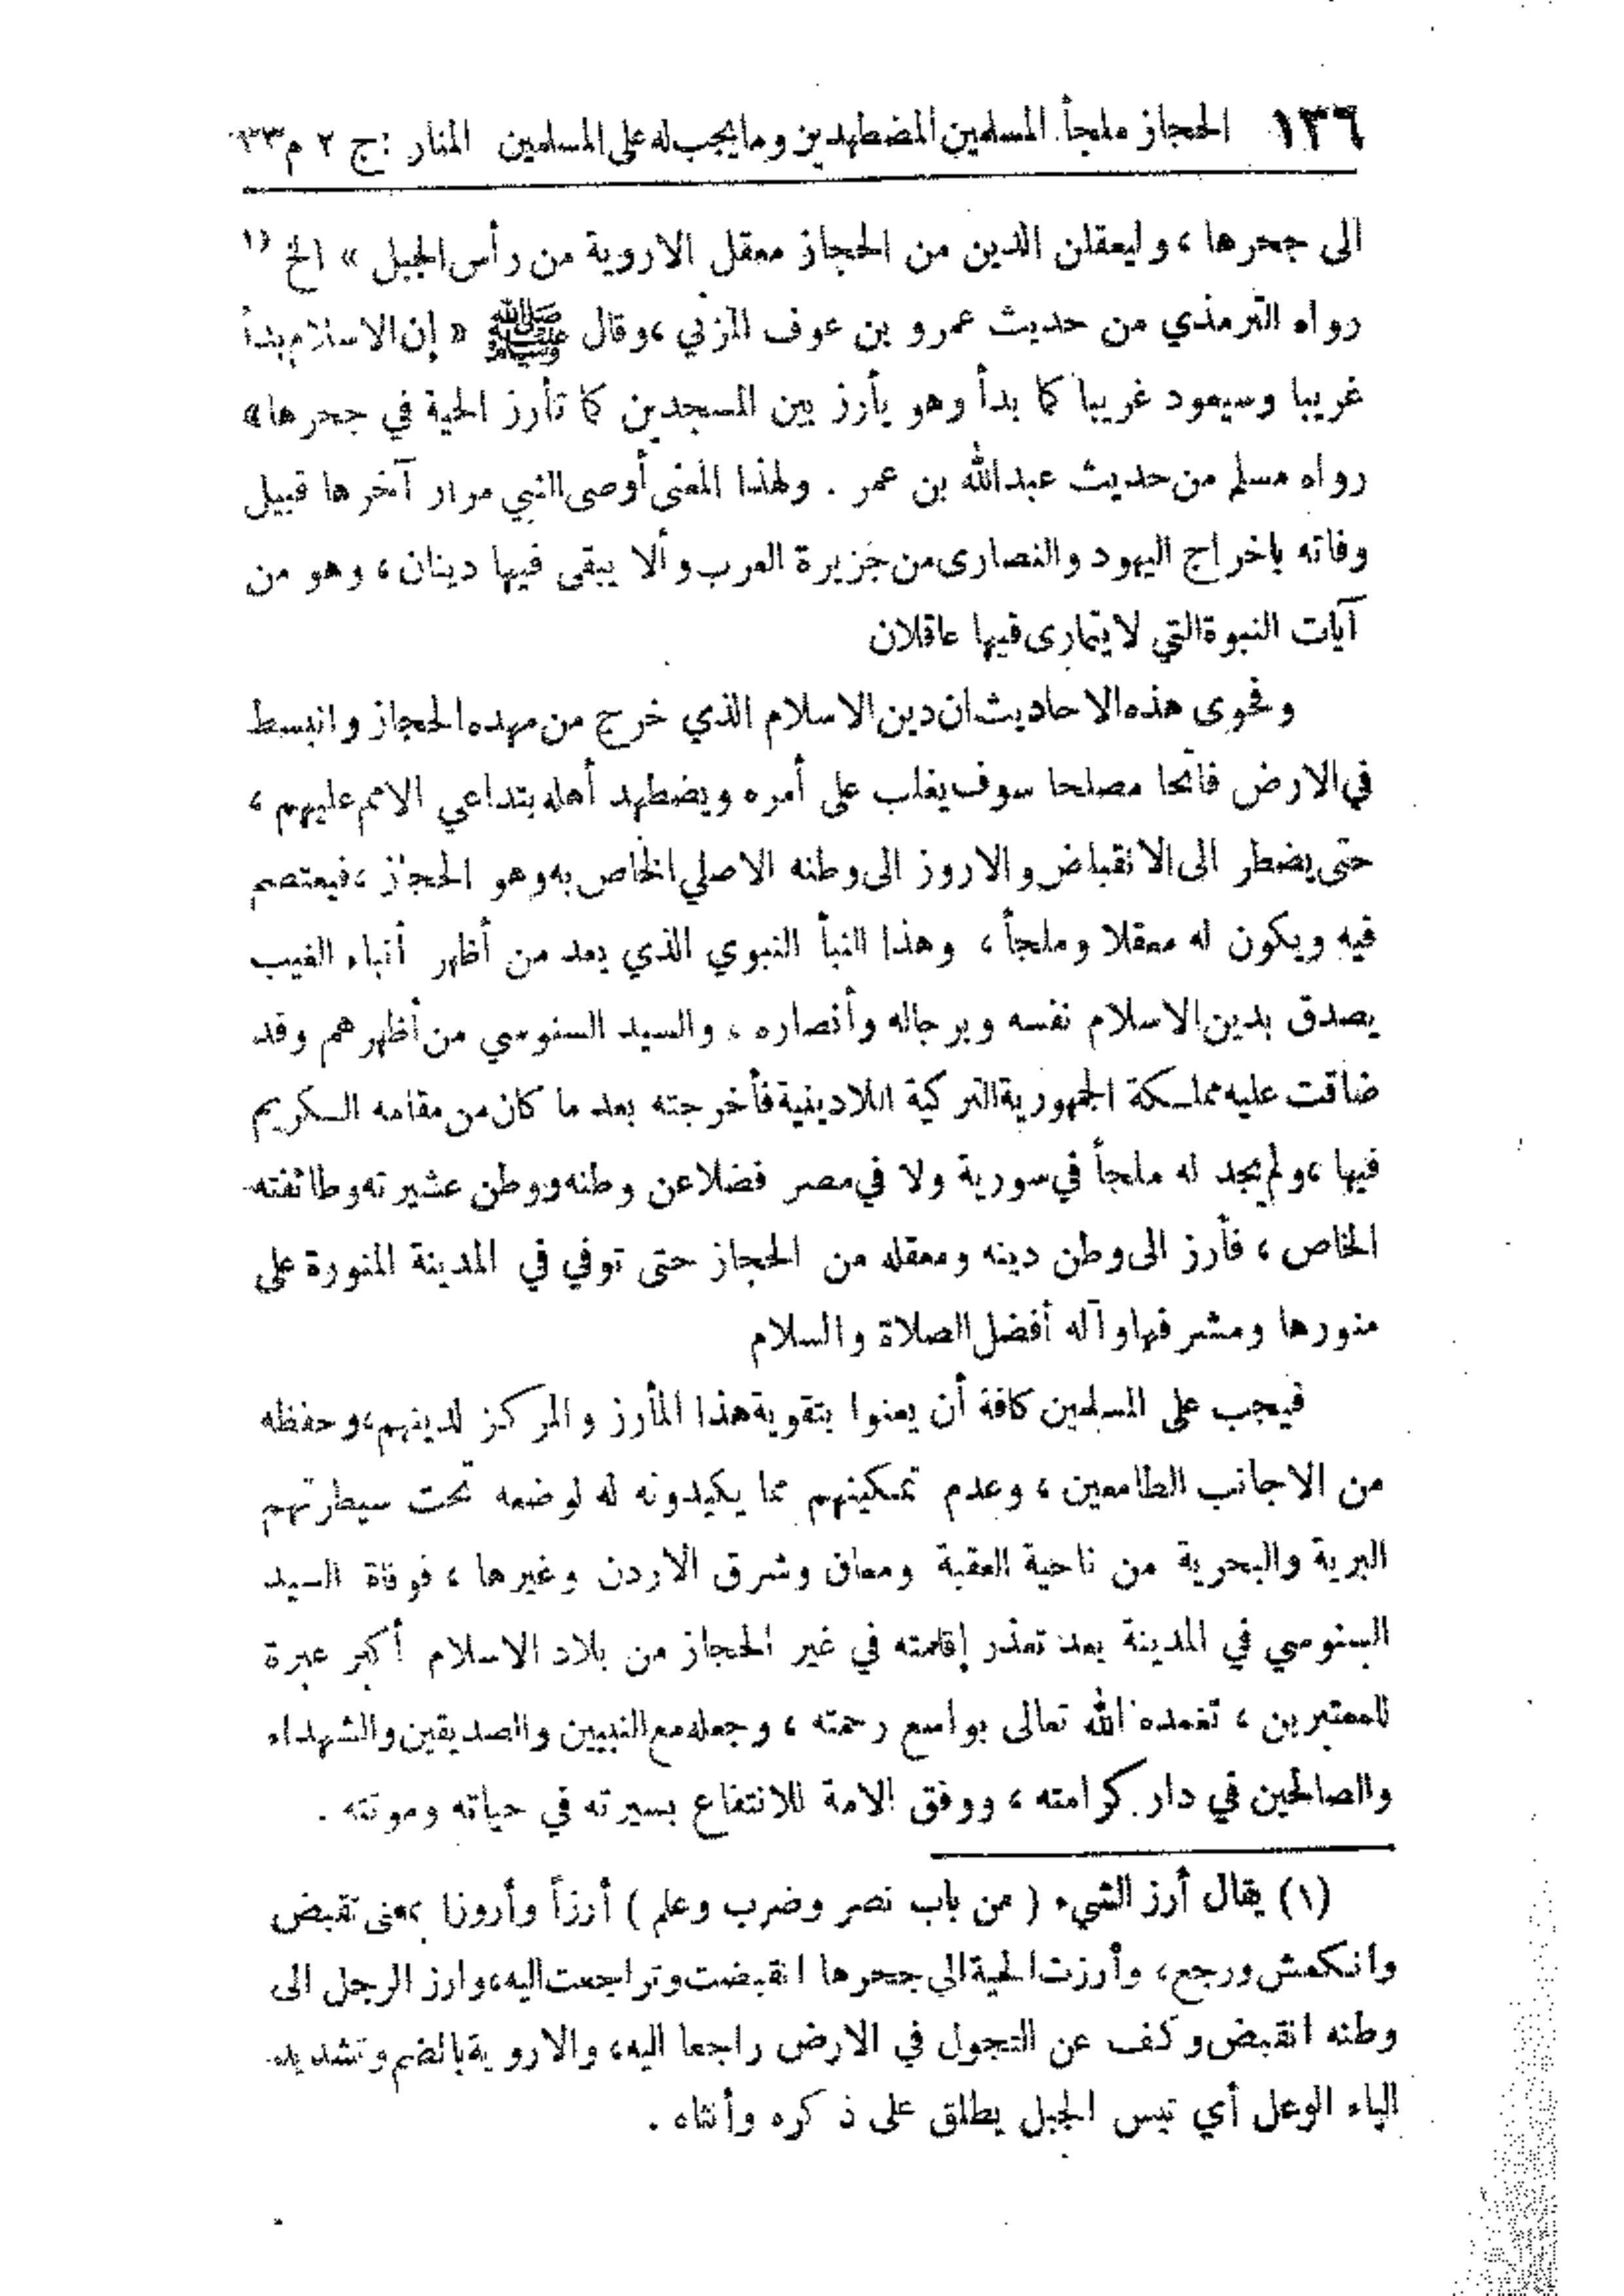 ١٣٦ الحجاز ملجأ المسلمين المضطهدين وما يجب له على المسلمين المنار : ج ٢ م ٣٣
الى جحرها ، وليعقلن الدين من الحجاز معقل الاروية من رأس الجبل » الخ (١
رواه الترمذي من حديث عمرو بن عوف المزني ، وقال ﷺ « إن الاسلام بدأ
غريبا وسيعود غريبا كما بدأ وهو يأرز بين المسجدين كما تأرز الحية في جحرها »
رواه مسلم من حديث عبدالله بن عمر . ولهذا المعنى أوصى النبي مرار آخرها قبيل
وفاته باخراج اليهود والنصارى من جزيرة العرب وألا يبقى فيها دينان ، وهو من
آيات النبوة التي لا يتمارى فيها عاقلان
وفحوى هذه الاحاديث ان دين الاسلام الذي خرج من مهده الحجاز وانبسط
في الارض فاتحا مصلحا سوف يغلب على أمره ويضطهد أهله بتداعي الامم عليهم ،
حتى يضطر الى الانقباض والاروز الى وطنه الاصلي الخاص به وهو الحجاز ، فيعتصم
فيه ويكون له معقلا وملجأ ، وهذا النبأ النبوي الذي يعد من أظهر أنباء الغيب
يصدق بدين الاسلام نفسه وبرجاله وأنصاره ، والسيد السنوسي من أظهرهم وقد
ضاقت عليه مملكة الجمهورية التركية اللادينية فأخرجته بعد ما كان من مقامه الكريم
فيها ، ولم يجد له ملجأ في سورية ولا في مصر فضلا عن وطنه ووطن عشيرته وطائفته
الخاص ، فأرز الى وطن دينه ومعقله من الحجاز حتى توفي في المدينة المنورة على
منورها ومشرفها وآله أفضل الصلاة والسلام
فيجب على المسلمين كافة أن يعنوا بتقوية هذا المأرز والمركز لدينهم ، وحفظه
من الاجانب الطامعين ، وعدم تمكينهم مما يكيدونه له لوضعه تحت سيطرتهم
البرية والبحرية من ناحية العقبة ومعان وشرق الاردن وغيرها ، فوفاة السيد
السنوسي في المدينة بعد تعذر إقامته في غير الحجاز من بلاد الاسلام أكبر عبرة
للمعتبرين ، تغمده الله تعالى بواسع رحمته ، وجعله مع النبيين والصديقين والشهداء
والصالحين في دار كرامته ، ووفق الامة للانتفاع بسيرته في حياته وموتته .
(١) يقال أرز الشيء ( من باب نصر وضرب وعلم ) أرزاً وأروزا بمعنى تقبض
وانكمش ورجع ، وأرزت الحية الى جحرها انقبضت وتراجعت اليه ، وارز الرجل الى
وطنه انقبض وكف عن التجول في الارض راجعا اليه ، والاروية بالضم وتشديد
الياء الوعل أي تيس الجبل يطلق على ذكره وأنثاه .